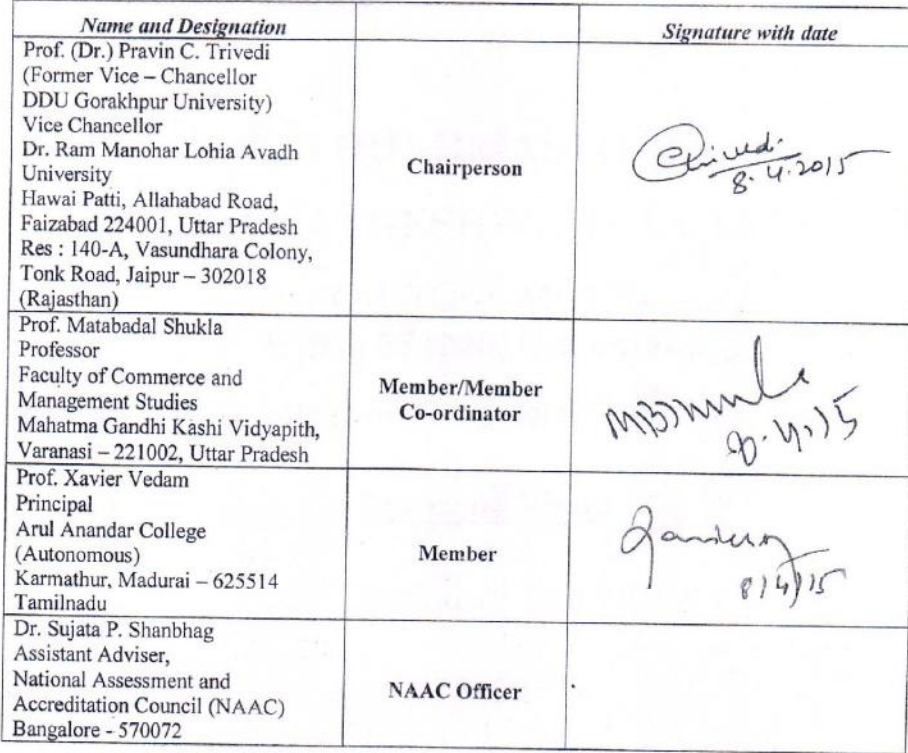 Name and Designation
Signature with date
Prof. (Dr.) Pravin C. Trivedi
(Former Vice – Chancellor
DDU Gorakhpur University)
Vice Chancellor
Dr. Ram Manohar Lohia Avadh
University
Hawai Patti, Allahabad Road,
Faizabad 224001, Uttar Pradesh
Res : 140-A, Vasundhara Colony,
Tonk Road, Jaipur – 302018
(Rajasthan)
Chairperson
8.4.2015
Prof. Matabadal Shukla
Professor
Faculty of Commerce and
Management Studies
Mahatma Gandhi Kashi Vidyapith,
Varanasi – 221002, Uttar Pradesh
Member/Member
Co-ordinator
8.4.15
Prof. Xavier Vedam
Principal
Arul Anandar College
(Autonomous)
Karmathur, Madurai – 625514
Tamilnadu
Member
8/4/15
Dr. Sujata P. Shanbhag
Assistant Adviser,
National Assessment and
Accreditation Council (NAAC)
Bangalore - 570072
NAAC Officer